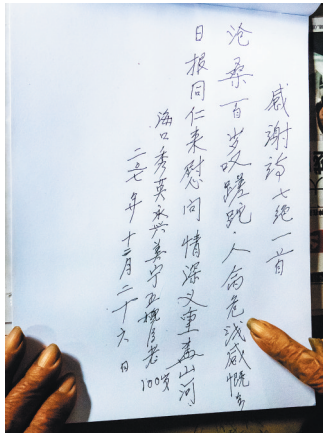 感谢诗七绝一首
沧桑百岁叹蹉跎·人命危浅感慨多
日报同仁来慰问 情深义重盖山河
海口秀英永兴美宁 老 100岁
二〇一七年十二月二十六日